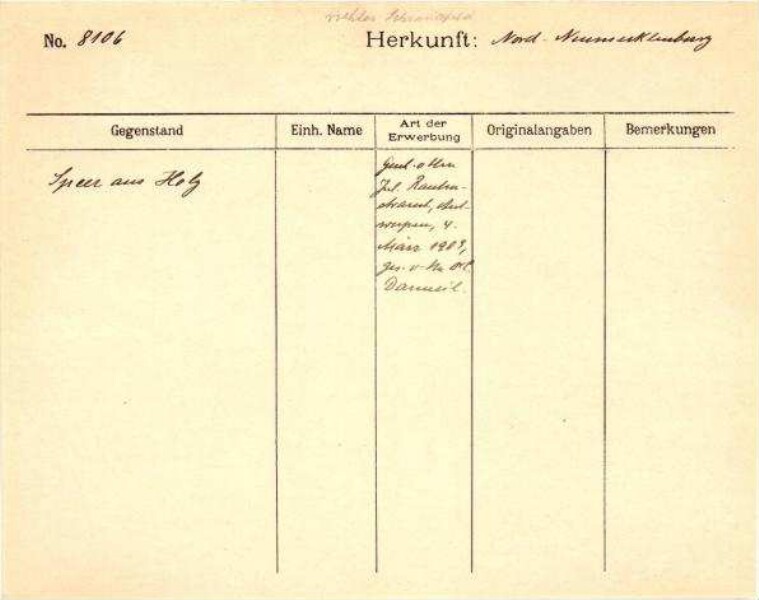 No. 8106 Herkunft: Nord-Neumecklenburg
Gegenstand Einh. Name Art der Erwerbung Originalangaben Bemerkungen
Speer aus Holz
Jul. Rauten-
strauch, Ant-
werpen, 4.
März 1908,
ges. v.